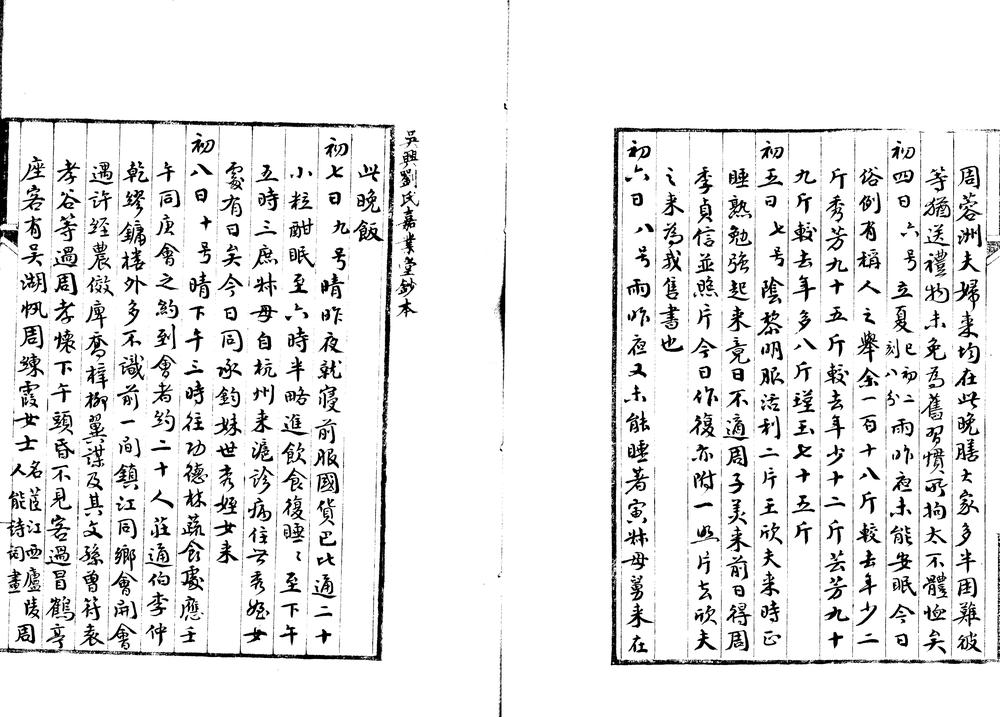 周蓉洲夫婦來均在此晚膳大家多半困難彼
等猶送禮物未免為舊習慣所拘太不體恤矣
初四日六号立夏巳初二刻八分雨昨夜未能安眠今日
俗例有稱人之舉余一百十八斤較去年少二
斤秀芳九十五斤較去年少十二斤芸芳九十
九斤較去年多八斤瑾玉七十五斤
初五日七号陰黎明服沽利二片王欣夫來時正
睡熟勉強起來竟日不適周子美來前日得周
季貞信並照片今日作復亦附一照片去欣夫
之來為我售書也
初六日八号雨昨夜又未能睡著寅妹母舅來在
吳興劉氏嘉業堂鈔本
此晚飯
初七日九号晴昨夜就寢前服國貨巴比通二十
小粒酣眠至六時半略進飲食復睡〻至下午
五時三庶妹母自杭州來滬診病住世秀姪女
處有日矣今日同承鈞妹世秀姪女來
初八日十号晴下午三時往功德林蔬食處應壬
午同庚會之約到會者約二十人莊通伯李仲
乾繆鏞樓外多不識前一間鎮江同鄉會開會
遇許經農儆庫喬梓柳翼謀及其文孫曾符袁
孝谷等過周孝懷下午頭昏不見客過冒鶴亭
座客有吳湖帆周練霞女士名茝江西廬陵周人能詩詞畫